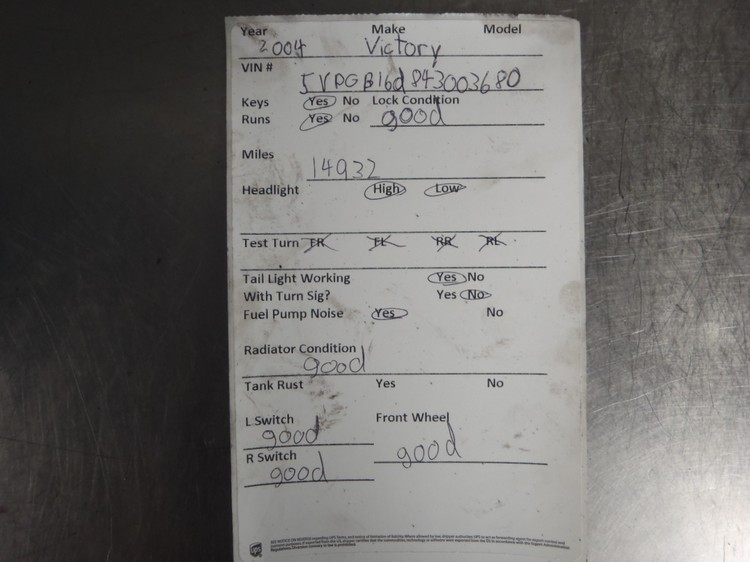 Year Make Model
2004 Victory
VIN #
5VPGB16d843003680
Keys Yes No Lock Condition
Runs Yes No good
Miles
14932
Headlight High Low
Test Turn FR FL RR RL
Tail Light Working Yes No
With Turn Sig? Yes No
Fuel Pump Noise Yes No
Radiator Condition
good
Tank Rust Yes No
L Switch Front Wheel
good
R Switch good
good